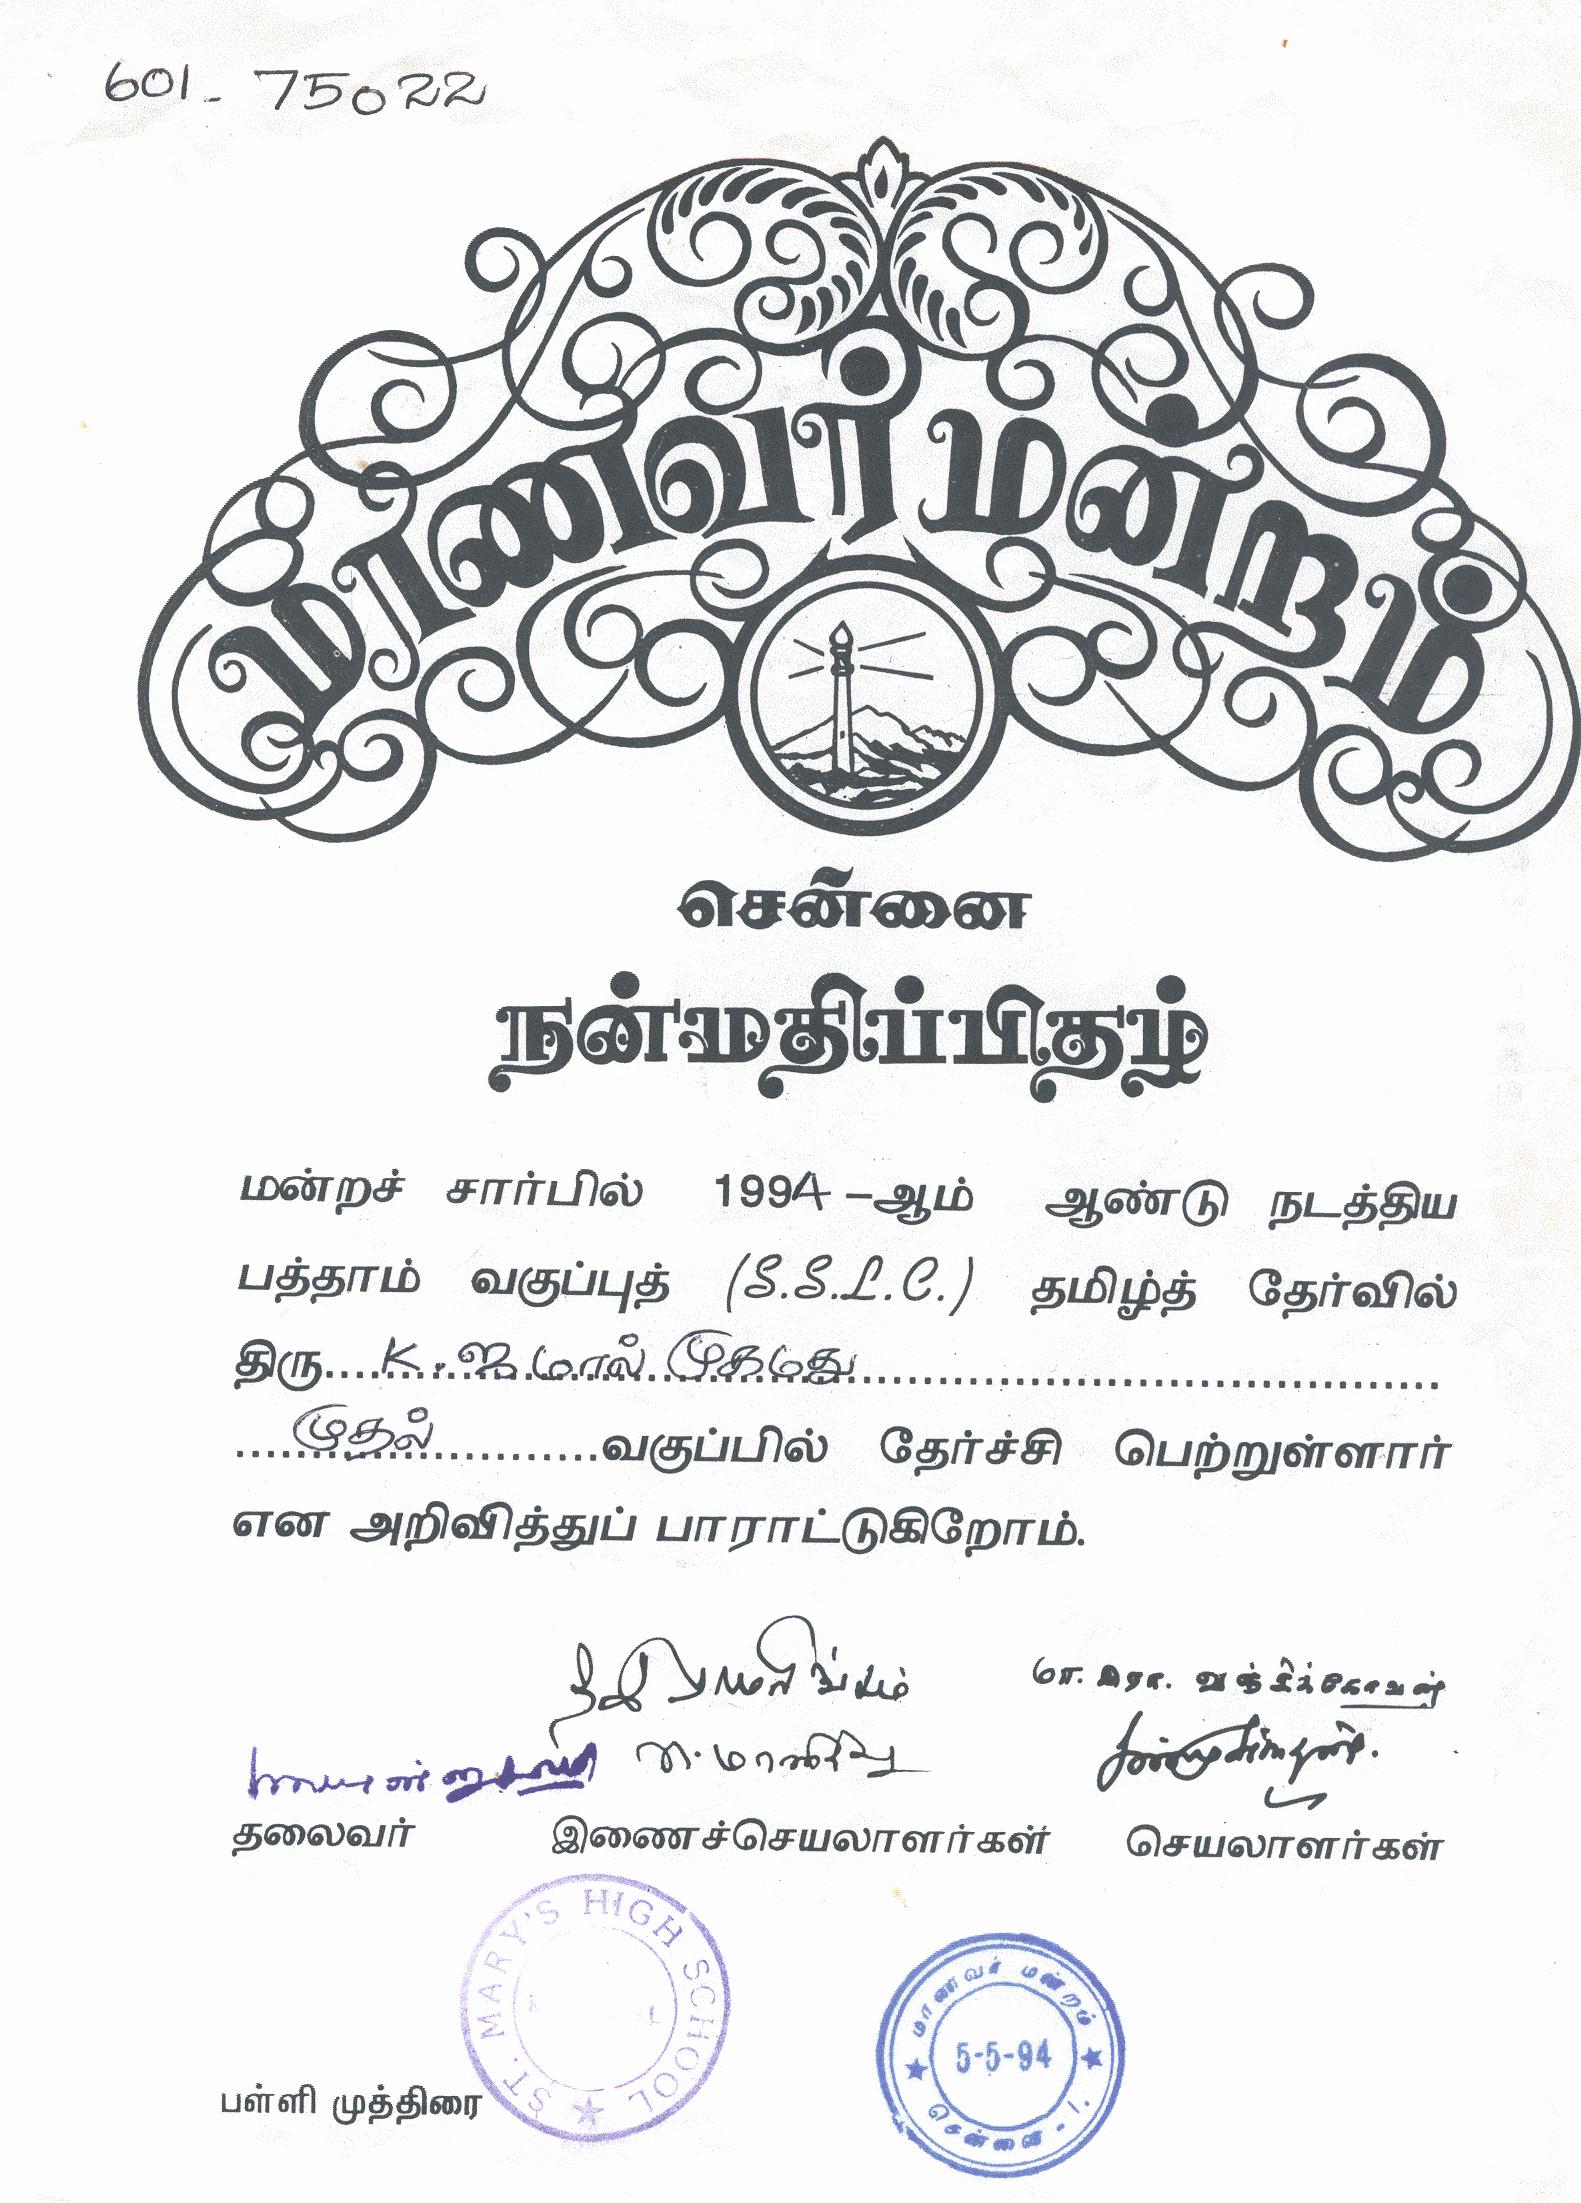 601 - 75022
மாணவர் மன்றம்
சென்னை
நன்மதிப்பிதழ்
மன்றச் சார்பில் 1994 -ஆம் ஆண்டு நடத்திய
பத்தாம் வகுப்புத் (S.S.L.C.) தமிழ்த் தேர்வில்
திரு....K. ஜமால் முகமது....
....முதல்....வகுப்பில் தேர்ச்சி பெற்றுள்ளார்
என அறிவித்துப் பாராட்டுகிறோம்.
மா. இரா.
தலைவர் இணைச்செயலாளர்கள் செயலாளர்கள்
ST. MARY'S HIGH SCHOOL
மாணவர் மன்றம்
5-5-94
சென்னை - 1.
பள்ளி முத்திரை